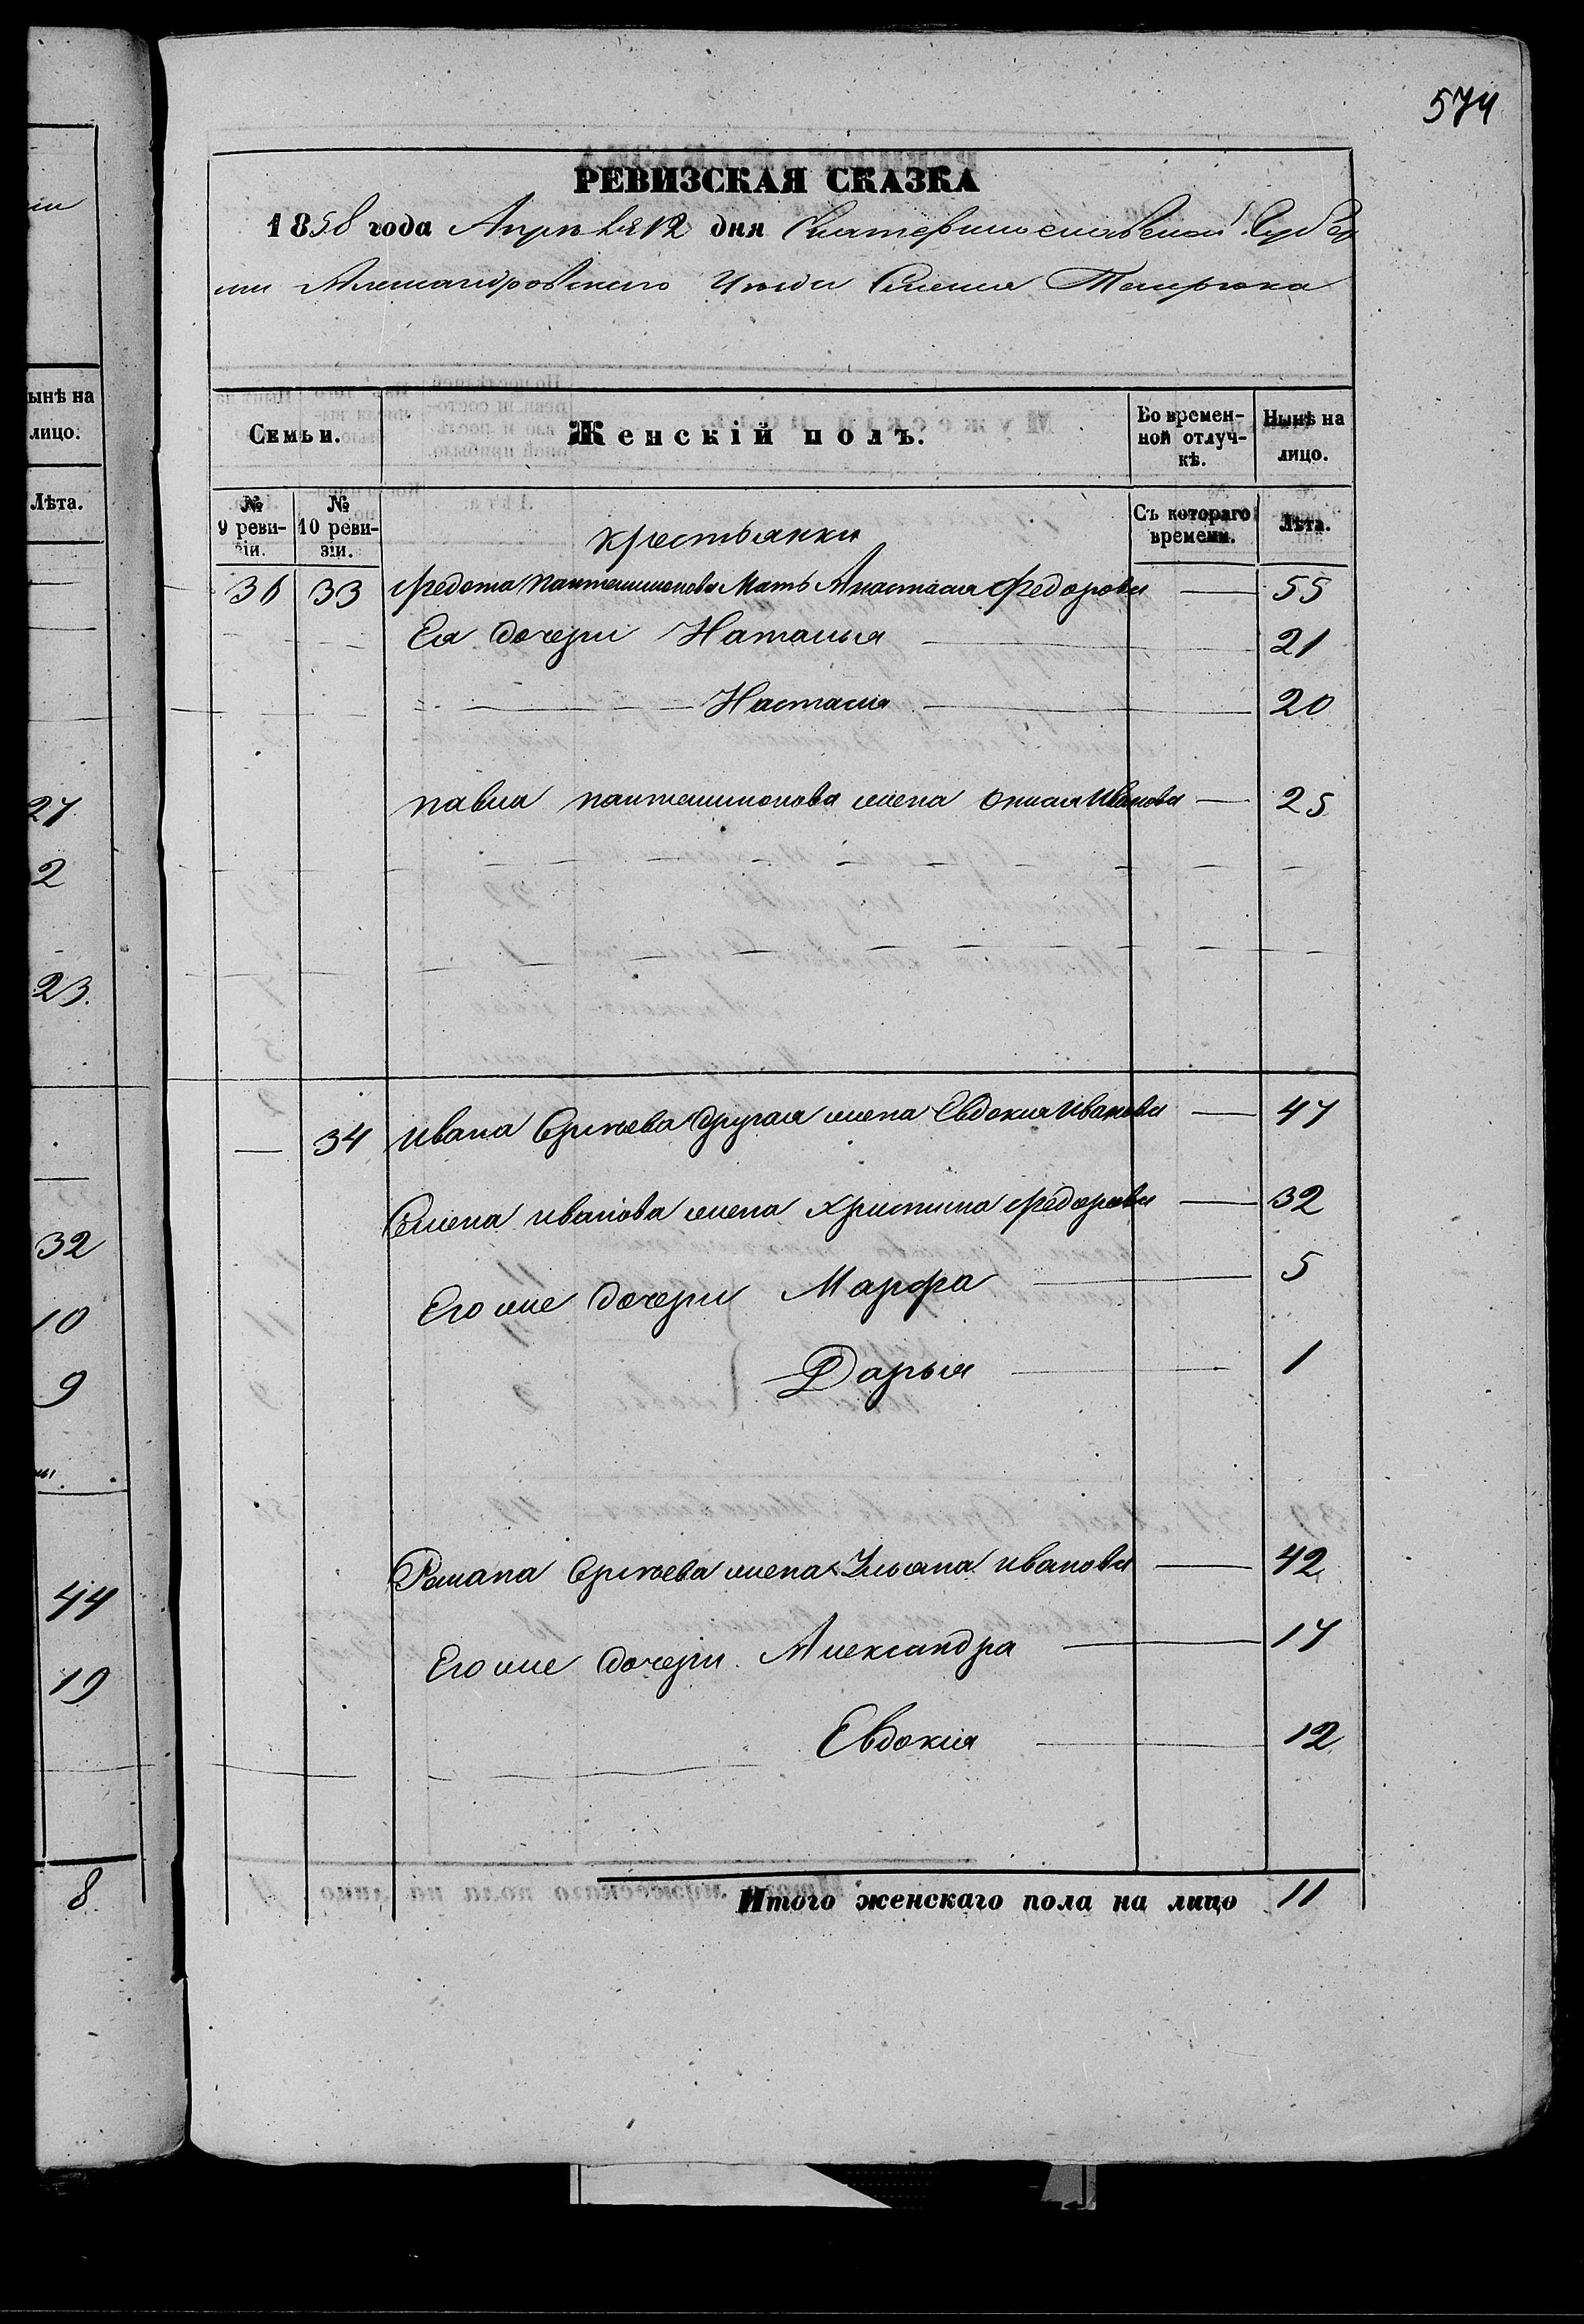 574
РЕВИЗСКАЯ СКАЗКА
1858 года Апреля 12 дня Екатеринославской Губер
нии Александровского Уезда Селения Темрюка
ынѣ на
лицо.
Лѣта.
27
2
23.
32
10
9
44
19
8
Семьи.
Женскій полъ.
Во времен-
ной отлуч-
кѣ.
Нынѣ на
лицо.
№
9 реви-
зіи.
№
10 реви-
зіи.
Съ котораго
времени.
Лѣта.
крестьянки
36 33 Федота Пантелимонова Мать Анастасия Федорова — 55
Ея дочери Наталья 21
Настасия 20
павла пантелимонова жена Иванова — 25
— 34 Ивана Сергеева другая жена Евдокия Иванова — 47
Семена иванова жена христина федорова — 32
Его же дочери Марфа 5
Дарья 1
Романа Сергеева жена Ульяна иванова — 42
Его же дочери Александра 17
Евдокия 12
Итого женскаго пола на лицо 11